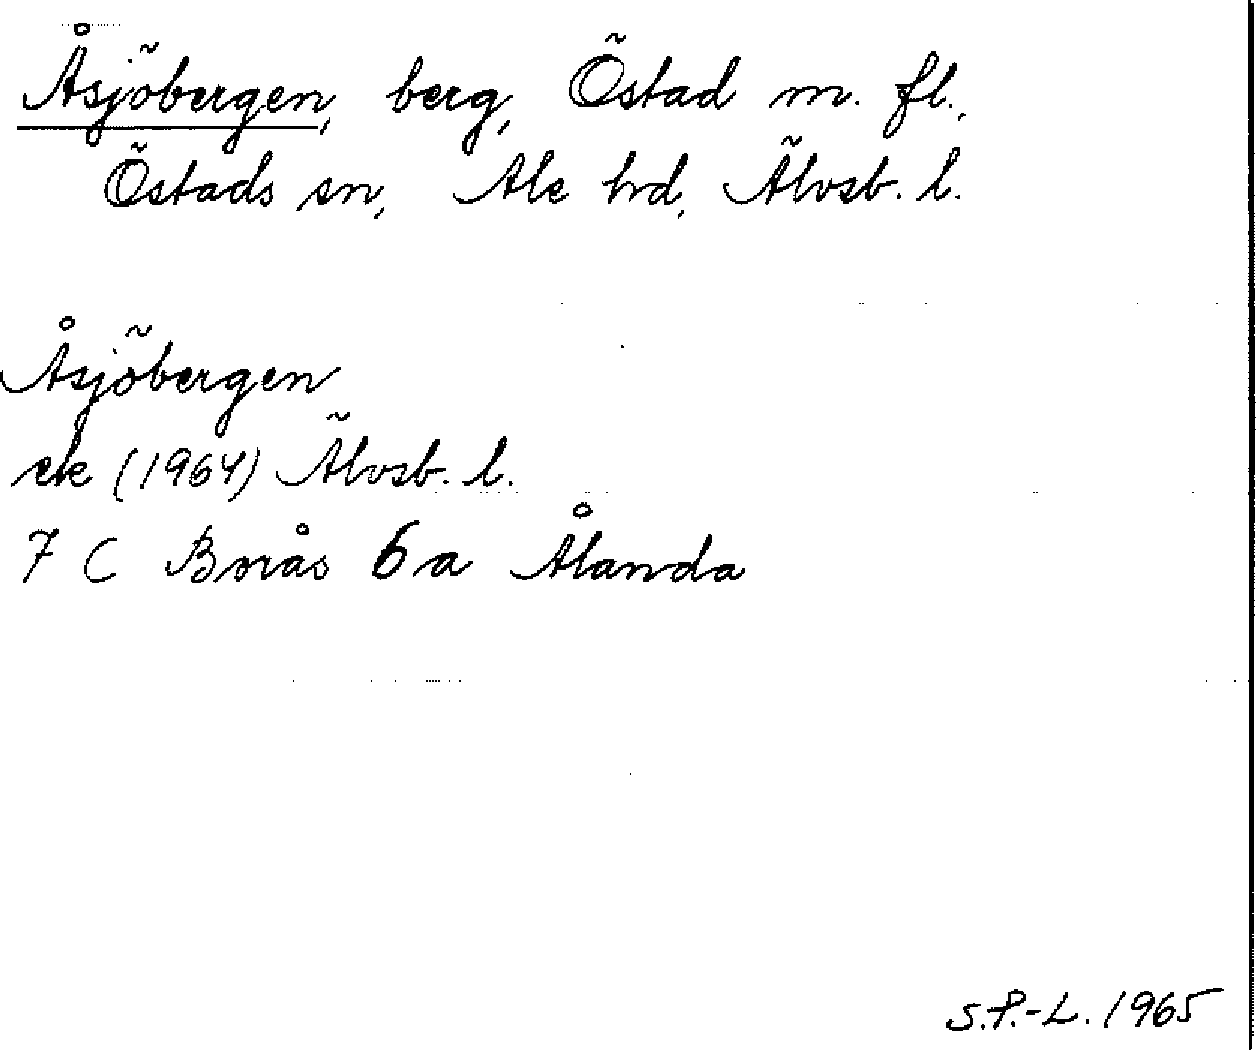 Åsjöbergen, berg, Östad m. fl.,
Östads sn, Ale hd, Älvsb. l.
Åsjöbergen
ek (1964) Älvsb. l.
7 C Borås 6 a Ålanda
S.P.-L. 1965